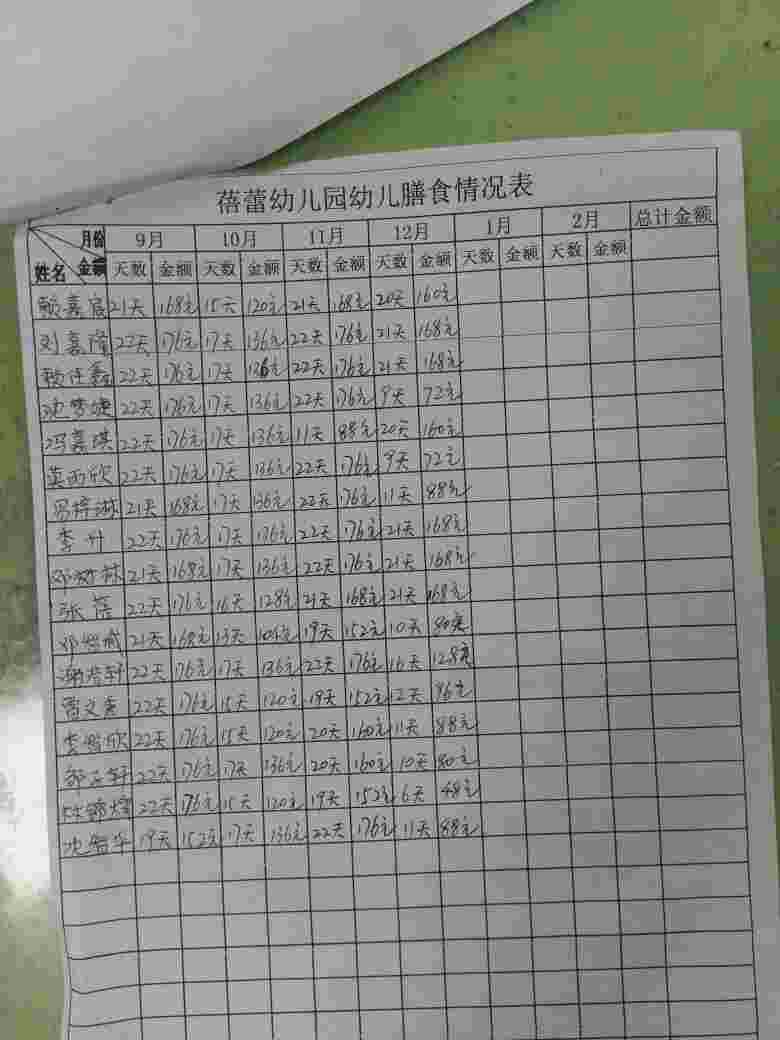 蓓蕾幼儿园幼儿膳食情况表
月份 9月 10月 11月 12月 1月 2月 总计金额
姓名 金额 天数 金额 天数 金额 天数 金额 天数 金额 天数 金额 天数 金额
赖嘉宸 21天 168元 15天 120元 21天 168元 20天 160元
刘嘉隆 22天 176元 17天 136元 22天 176元 21天 168元
赖任鑫 22天 176元 17天 136元 22天 176元 21天 168元
沈梦婕 22天 176元 17天 136元 22天 176元 9天 72元
冯嘉琪 22天 176元 17天 136元 11天 88元 20天 160元
莫雨欣 22天 176元 17天 136元 22天 176元 9天 72元
21天 168元 17天 136元 22天 176元 11天 88元
李升 22天 176元 17天 136元 22天 176元 21天 168元
邓 21天 168元 17天 136元 22天 176元 21天 168元
张蓓 22天 176元 16天 128元 21天 168元 21天 168元
邓 21天 168元 13天 104元 19天 152元 10天 80元
谢浩轩 22天 176元 17天 136元 22天 176元 16天 128元
曾文 22天 176元 15天 120元 19天 152元 12天 96元
李 欣 22天 176元 15天 120元 20天 160元 11天 88元
邹 轩 22天 176元 17天 136元 20天 160元 10天 80元
林 22天 176元 15天 120元 19天 152元 6天 48元
沈 华 19天 152元 17天 136元 22天 176元 11天 88元